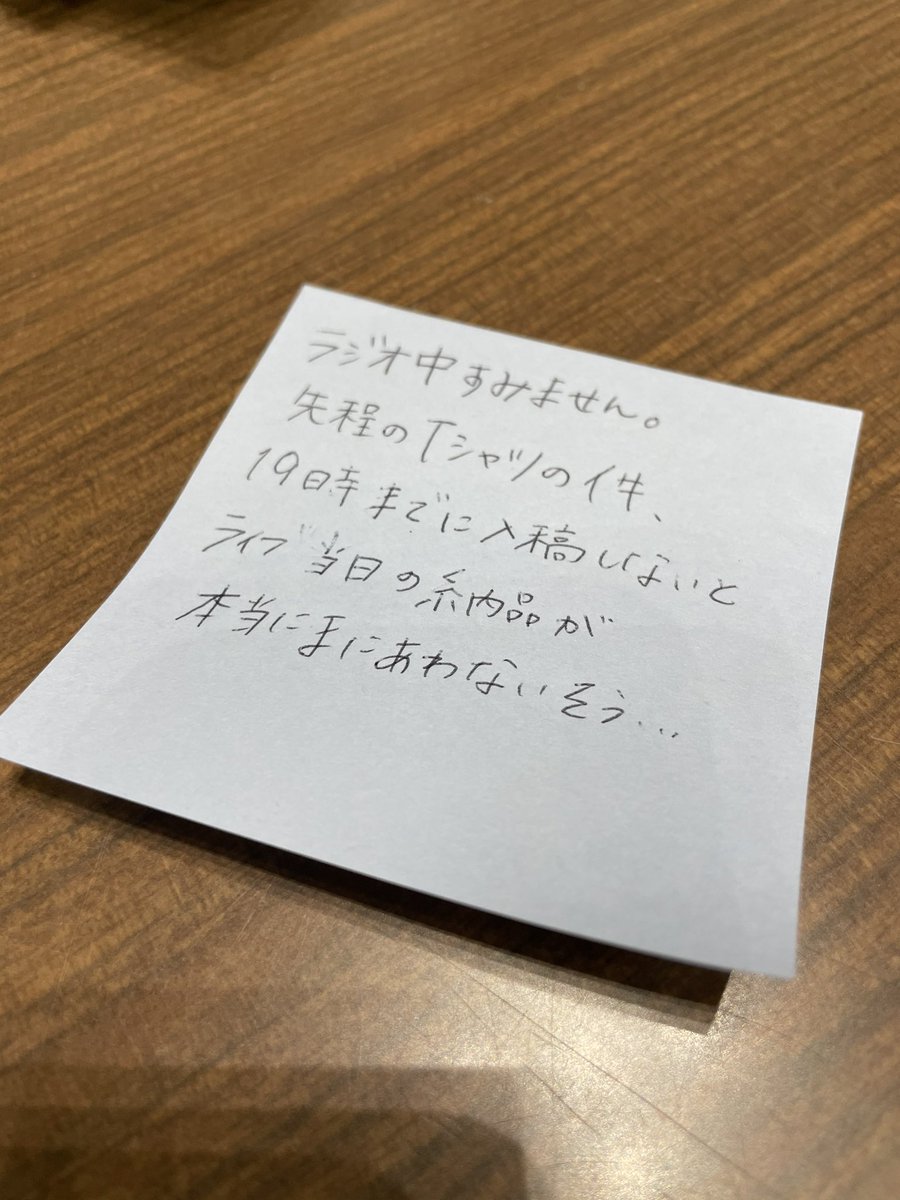 ラジオ中すみません。
先程のTシャツの件、
19時までに入稿しないと
ライブ当日の納品が
本当にまにあわないそう...